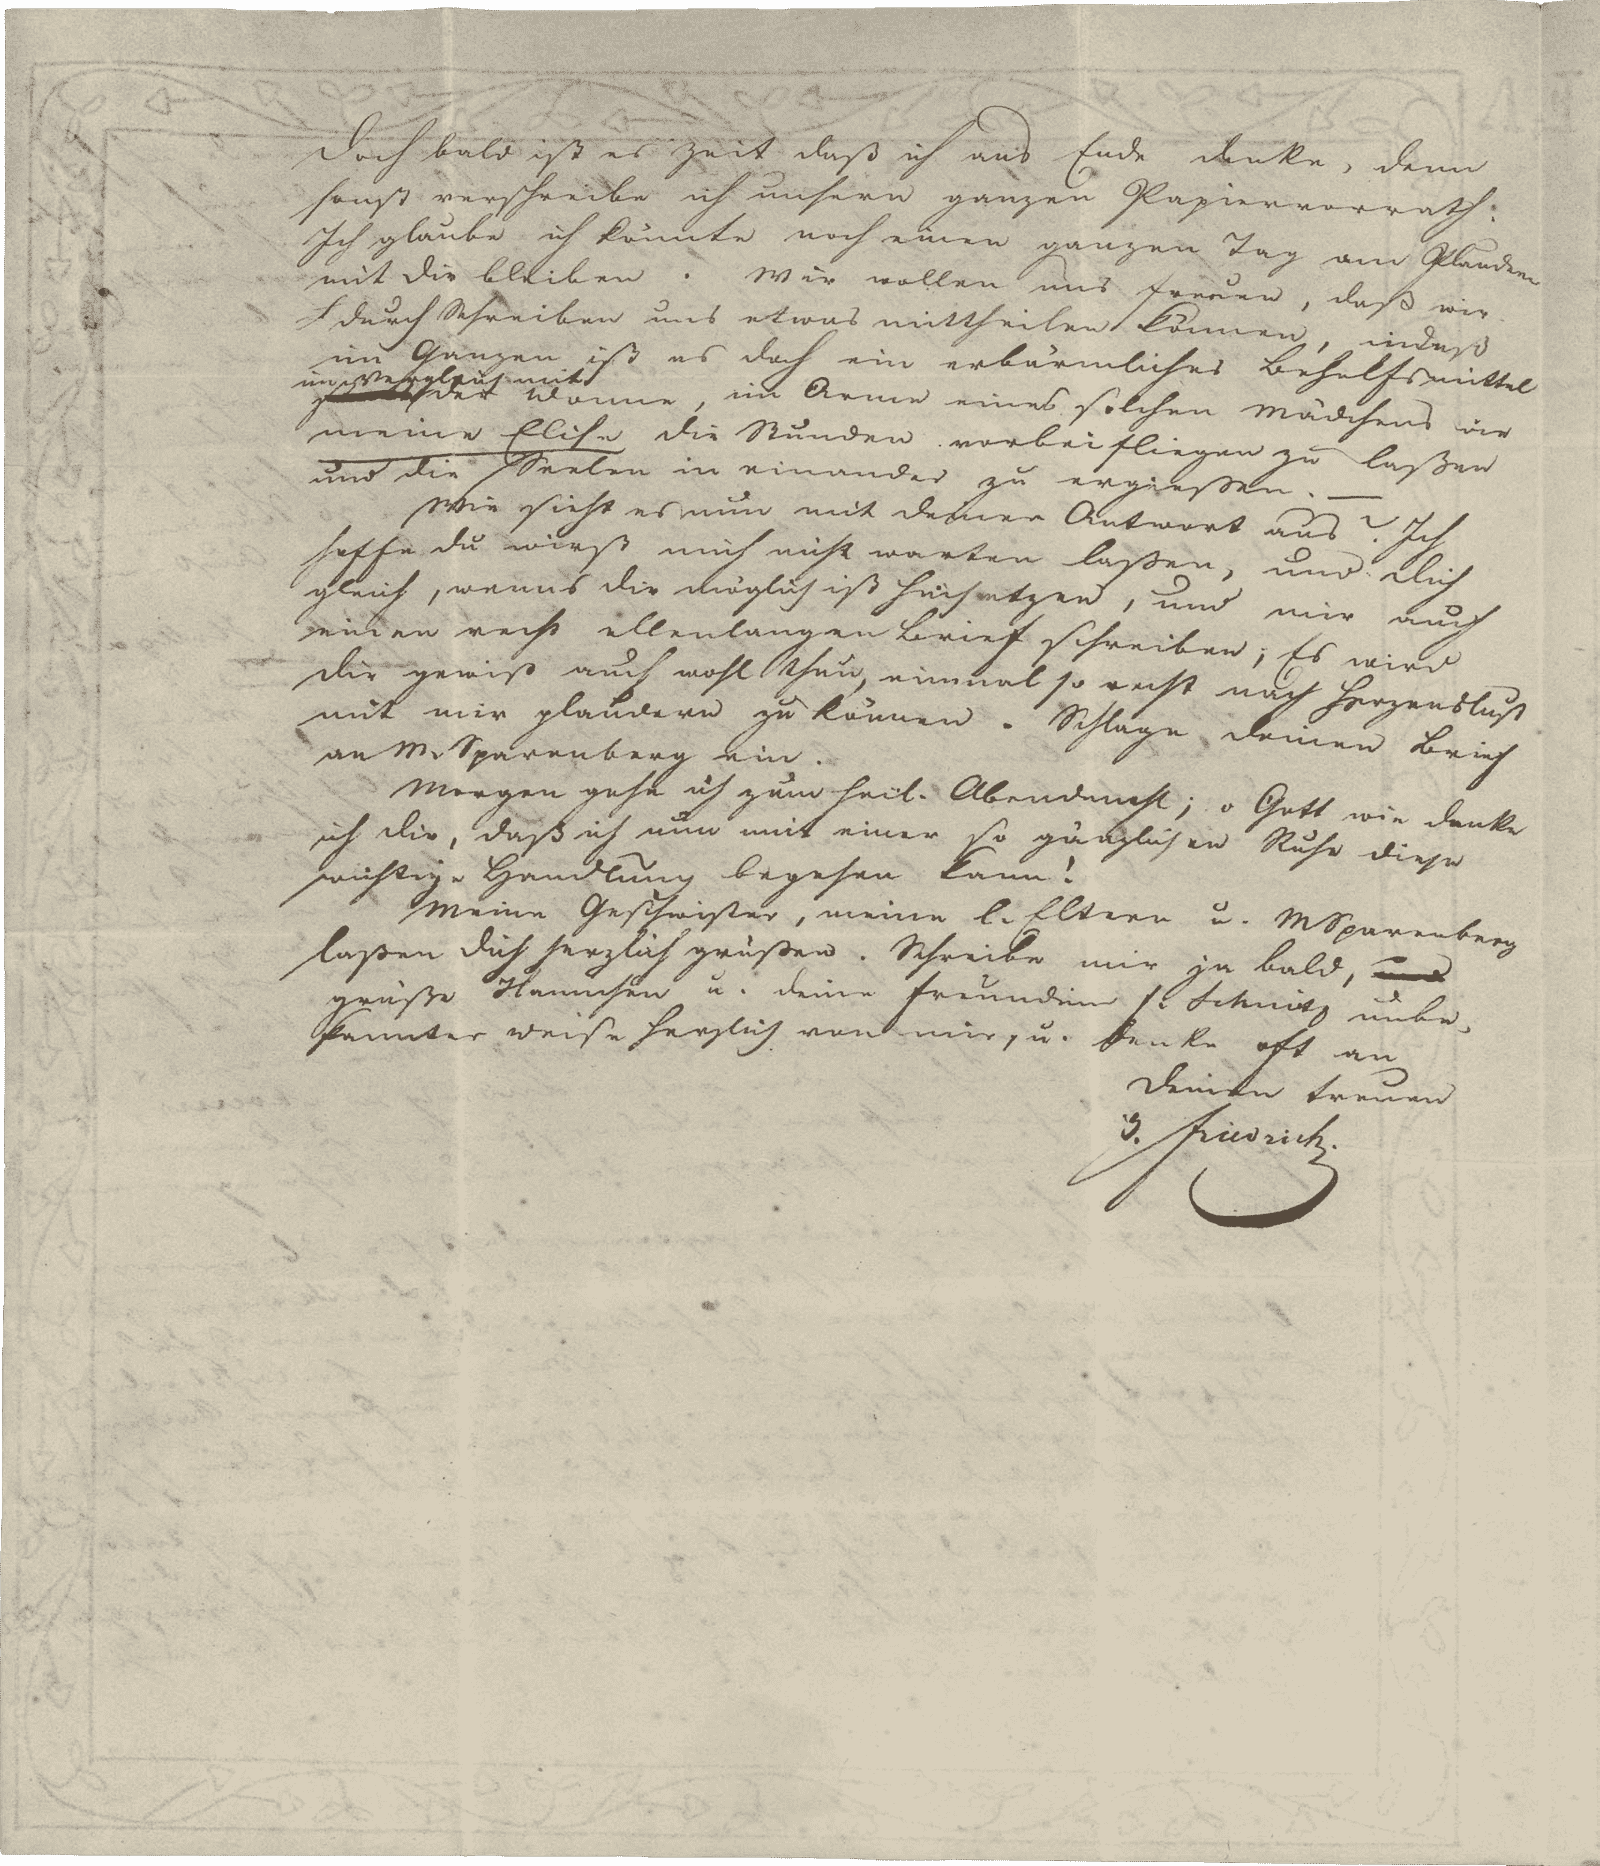 Doch bald ist es Zeit daß ich ans Ende denke, denn
sonst verschreibe ich unsern ganzen Papiervorrath.
Ich glaube ich könnte noch einen ganzen Tag am Plaudern
mit dir bleiben. Wir wollen uns freuen, daß wir
durch Schreiben uns etwas mittheilen können, indeß
im Ganzen ist es doch ein erbärmliches Behelfsmittel
im Vergleich mit
der Wonne, im Arme eines solchen Mädchens wie
meine Elise die Stunden vorbeifliegen zu laßen
und die Seelen in einander zu ergießen. —
Wie sieht es nun mit deiner Antwort aus? Ich
hoffe du wirst mich nicht warten laßen, und dich
gleich, wenns dir möglich ist hinsetzen, und mir auch
einen recht ellenlangen Brief schreiben; Es wird
dir gewiß auch wohl thun, einmal so recht nach Herzenslust
mit mir plaudern zu können. Schlage deinen Brief
an M. Sparenberg ein.
Morgen gehe ich zum heil. Abendmahl; o Gott wie danke
ich dir, daß ich nun mit einer so gänzlichen Ruhe diese
wichtige Handlung begehen kann!
Meine Geschwister, meine l. Eltern u. M Sparenberg
laßen dich herzlich grüßen. Schreibe mir ja bald, und
grüße Hannchen u. deine Freundinn Schnitz unbe-
kannter weise herzlich von mir, u. denke oft an
deinen treuen
Friedrich.